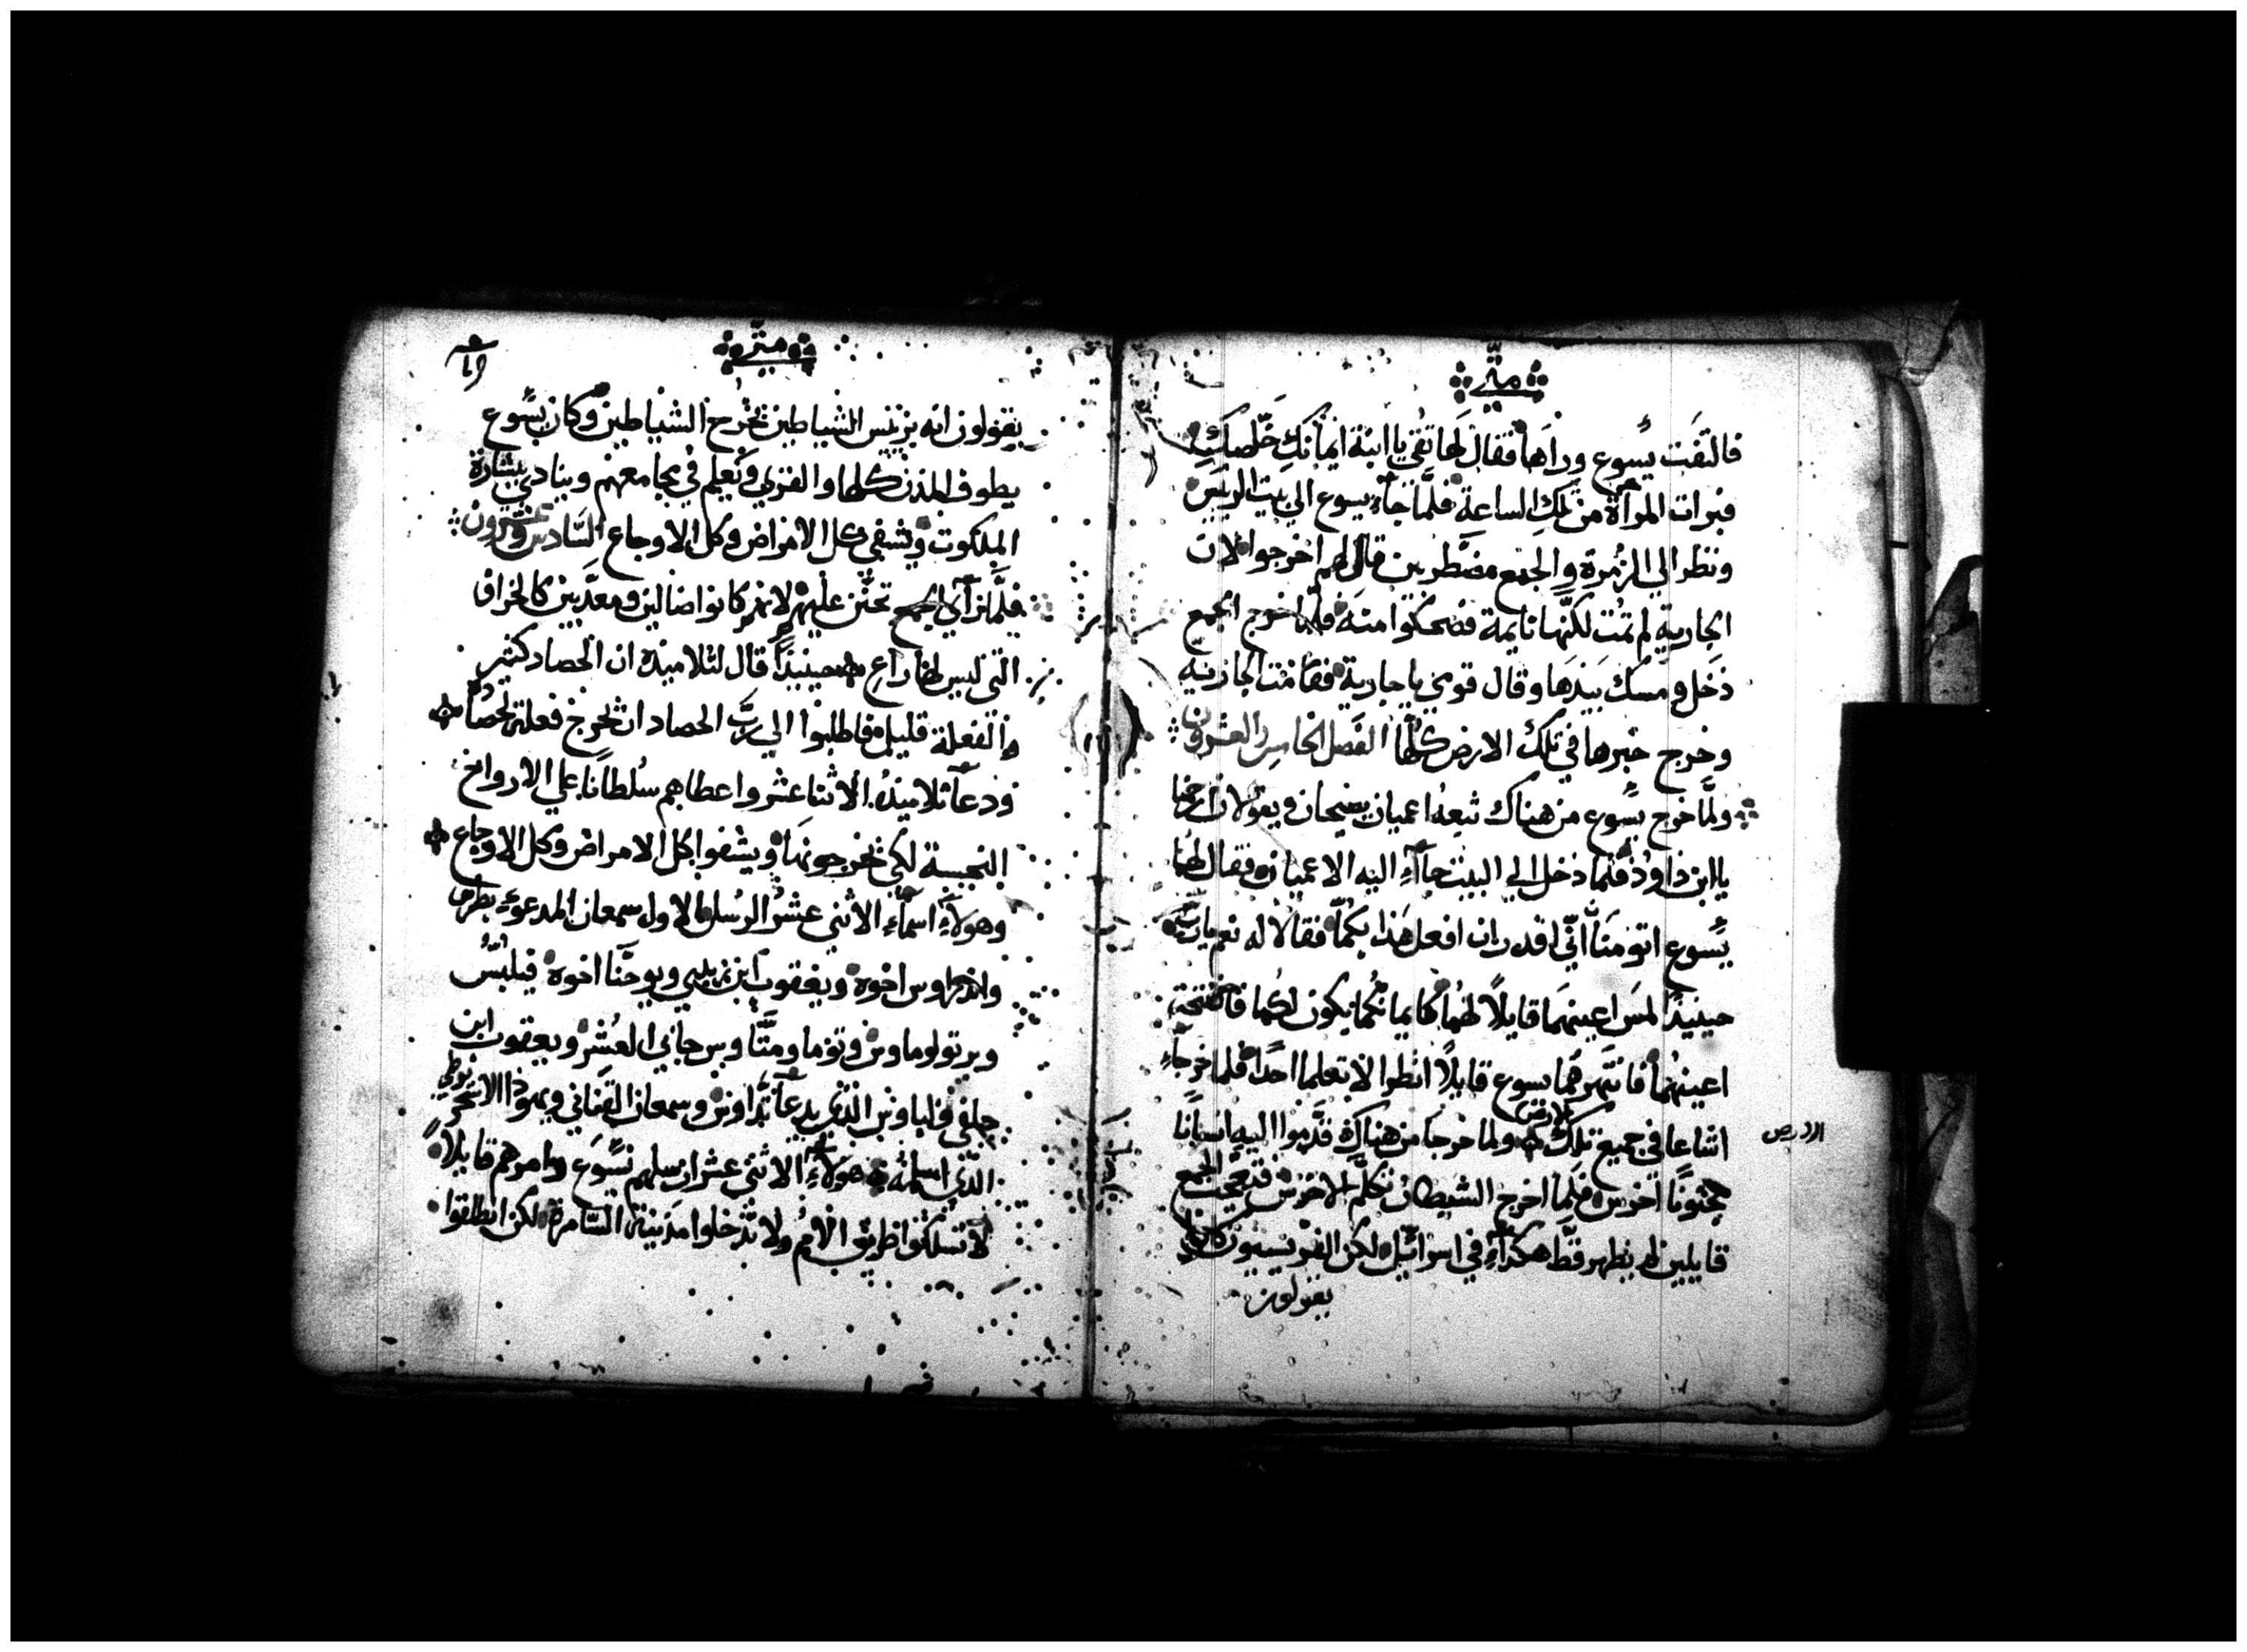 متّي
فالتفَت يسُوع وراَها فقال لَها ثقي يا ابنة ايمانكِ خلّصكِ
فبرات المرأة من تلك الساعة فلمَّا جاَء يسوع الي بيت الريس
ونظر الي الزُمرة والجمع مضطربين قال لهم اخرجوا لان
الجارية لم تمُت لكنّها نايمة فضحكوا منه فلما اخرج الجمع
دَخل ومسك بيَدهَا وقال قومي يا جارية فقامَت الجارية
وخرج خبرها في تلك الارض كلّها الفصل الخامس والعشرون
ولمَّا خرج يسُوع من هناك تبعهُ اعميان يصيحان ويقولان ارحمنا
يا ابن داوود فلمَا دخل الي البيت جاَء اليه الاعميان فقال لهُما
يسُوع اتومنَا انّي اقدر ان افعل هَذا بكمُا فقالا له نعم يارب
حينيذًا لمسَ اعينهمَا قايلاً لهُما كايمانكُما يكون لكما فانفتحت
اعينهُما فانتهرهَما يسوع قايلاً انظرا لا تعلما احدًا فلما خرجاَ
اشاعا في جميع تلك الارض ولما خرجا من هناك قدَّموا اليه انسانًا
مجنونًا اخرس فلمَا اخرج الشيطان تكلَّم الاخرس فتعجَّب الجمع
قايلين لم يظهر قطَّ هكذاَ في اسرائيل لكن الفريسيون كانوا
يقولون
متّي
يقولون انه بريس الشياطين يُخرج الشياطين وكان يسُوع
يطوف المدن كلها والقري ويُعلم في مجامعهم وينادي ببشارة
الملكوت ويشفي كل الامراض وكل الاوجاع السَّادس وعشرون
فلمَّا رآي الجمع تحنَّن عليهم لانهم كانوا ضالين ومعذَّبين كالخراف
التي ليس لها راعٍ حينيذًا قال لتلاميذه ان الحصاد كثير
والفعلة قليل فاطلبوا الي ربَّ الحصاد ان يُخرج فعلة لحصاده
ودعاَ تلاميذهُ الاثنا عشر واعطاهم سُلطانًا علي الارواح
النجسة لكي يخرجونهَا ويشفوا كل الامراض وكل الاوجاع
وهولاَءِ اسماَء الاثني عشر الرسُل الاول سمعان المدعوء بطرس
واندراوس اخوه ويعقوب ابن زبدي ويوحنَّا اخوه فيلبُس
وبرتولوماوس وتوما ومتَّاوس جابي العُشر ويعقوب ابن
حلفي ولباوس الذي يدعاَ تدَّاوس وسمعان القنَاني ويهوذا الاسخريوطي
الذي اسلمهُ هولاَءِ الاثني عشر ارسلهم يسُوع وامرهم قايلاً
لا تسلكوا طريق الامُم ولا تدخلوا مدينة السَّامرة لكن انطلقوا